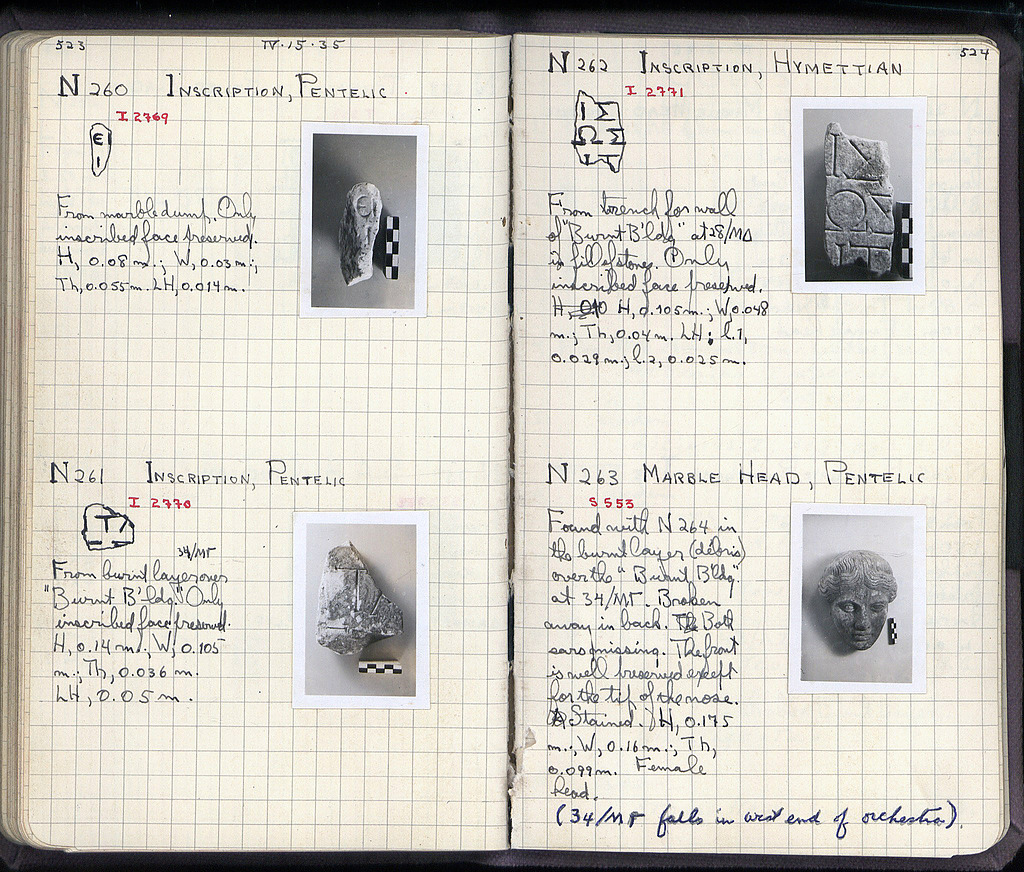 523
IV·15·35
N 260 INSCRIPTION, PENTELIC
I 2769
ЄI
I
From marble dump. Only
inscribed face preserved.
H, 0.08 m.; W, 0.03 m.;
Th, 0.055 m. LH, 0.014 m.
N 261 INSCRIPTION, PENTELIC
I 2770
34/ΜΓ
From burnt layer over
"Burnt B'ldg." Only
inscribed face preserved.
H, 0.14 m.; W, 0.105
m.; Th, 0.036 m.
LH, 0.05 m.
524
N 262 INSCRIPTION, HYMETTIAN
I 2771
From trench for wall
of "Burnt B'ldg" at 28/ΜΔ
in fill of stones. Only
inscribed face preserved.
H, 0.105 m.; W, 0.048
m.; Th, 0.04 m. LH: l.1,
0.029 m.; l.2, 0.025 m.
N 263 MARBLE HEAD, PENTELIC
S 553
Found with N 264 in
the burnt layer (débris)
over the "Burnt B'ldg"
at 34/ΜΓ. Broken
away in back. Both
ears missing. The front
is well preserved except
for the tip of the nose.
Stained. H, 0.175
m.; W, 0.16 m.; Th,
0.099 m. Female
head.
(34/ΜΓ falls in west end of orchestra).